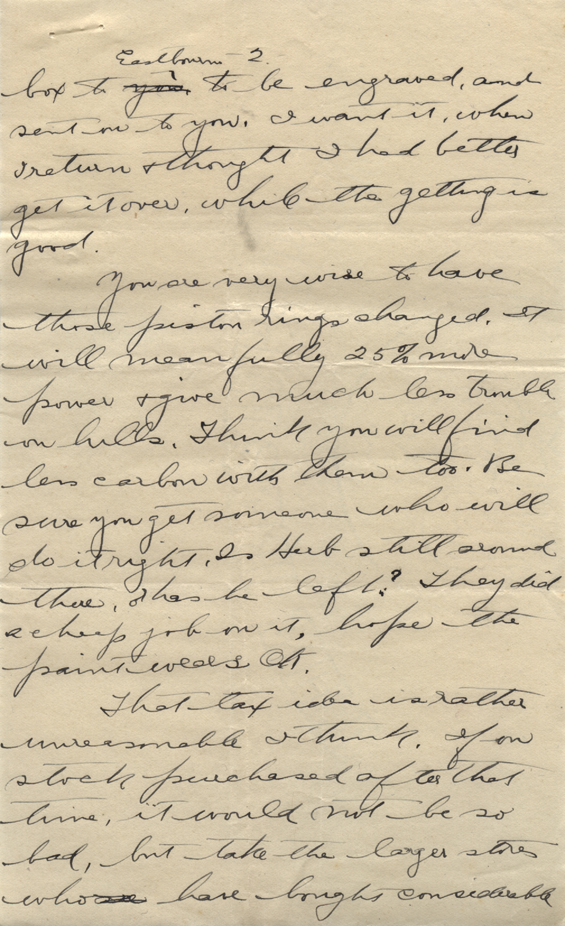 Eastbourn - 2.
box to you to be engraved, and
sent on to you. I want it, when
I return & thought I had better
get it over, while the getting is
good.
You are very wise to have
those piston rings changed. It
will mean fully 25% more
power & give much less trouble
on hills. Think you will find
less carbon with them too. Be
sure you get someone who will
do it right. Is Herb still around
there, or has he left? They did
a cheap job on it, hope the
paint wears OK.
That tax idea is rather
unreasonable I think. If on
stock purchased after that
time, it would not be so
bad, but take the larger stores
who have bought considerable